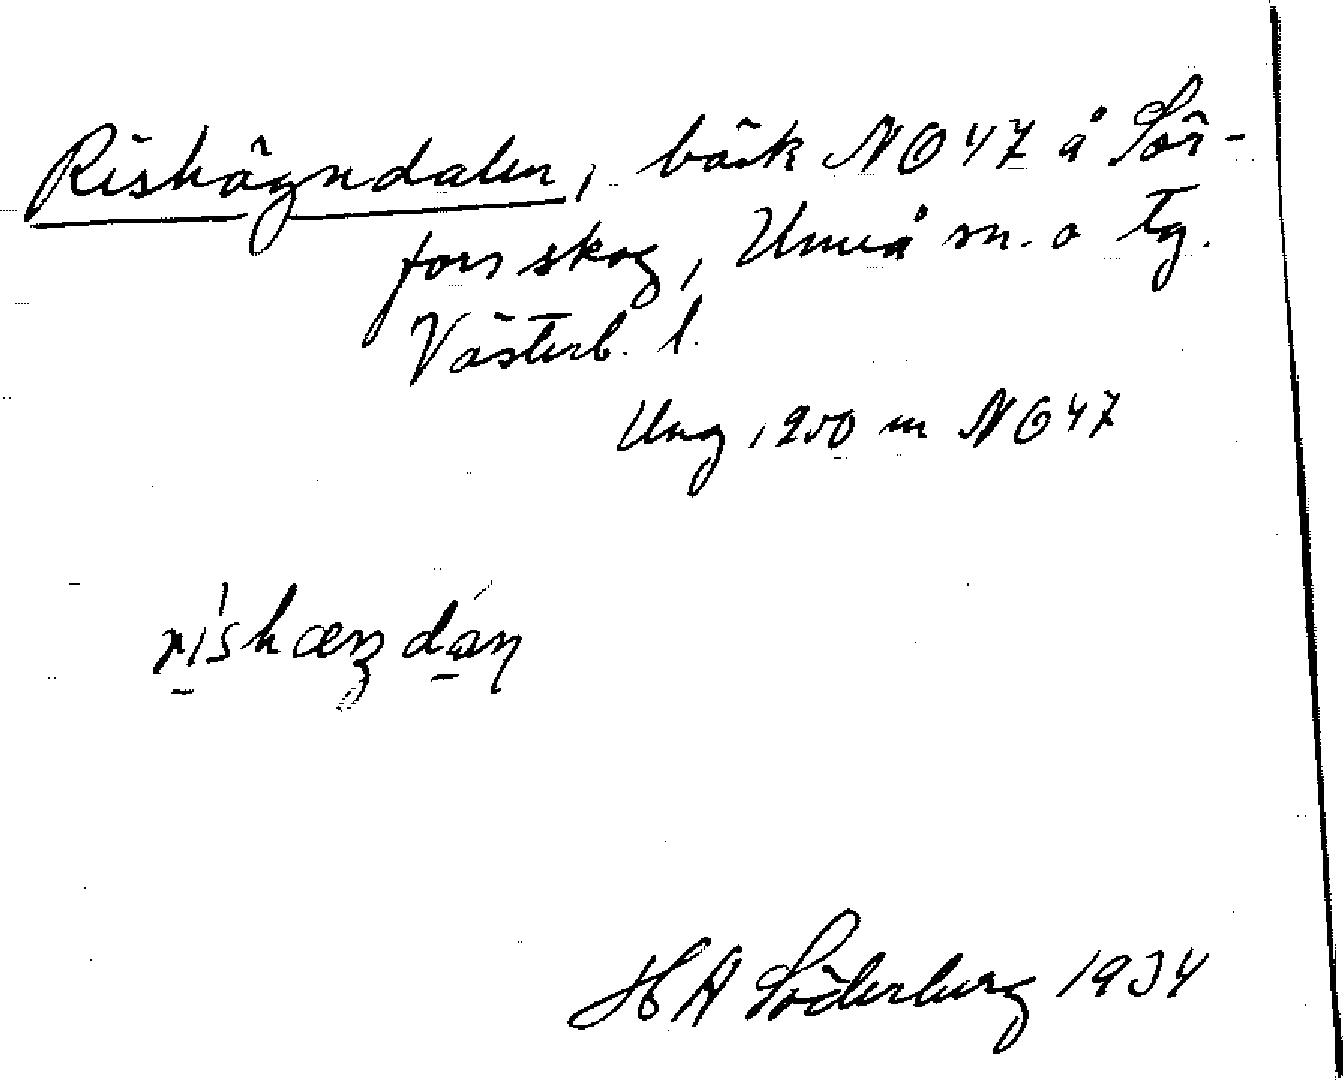 Rishögndalen, bäck NO 47 å Sör-
fors skog, Umeå sn. o tg.
Västerb. l.
Ung. 250 m NO 47
H A Söderberg 1934